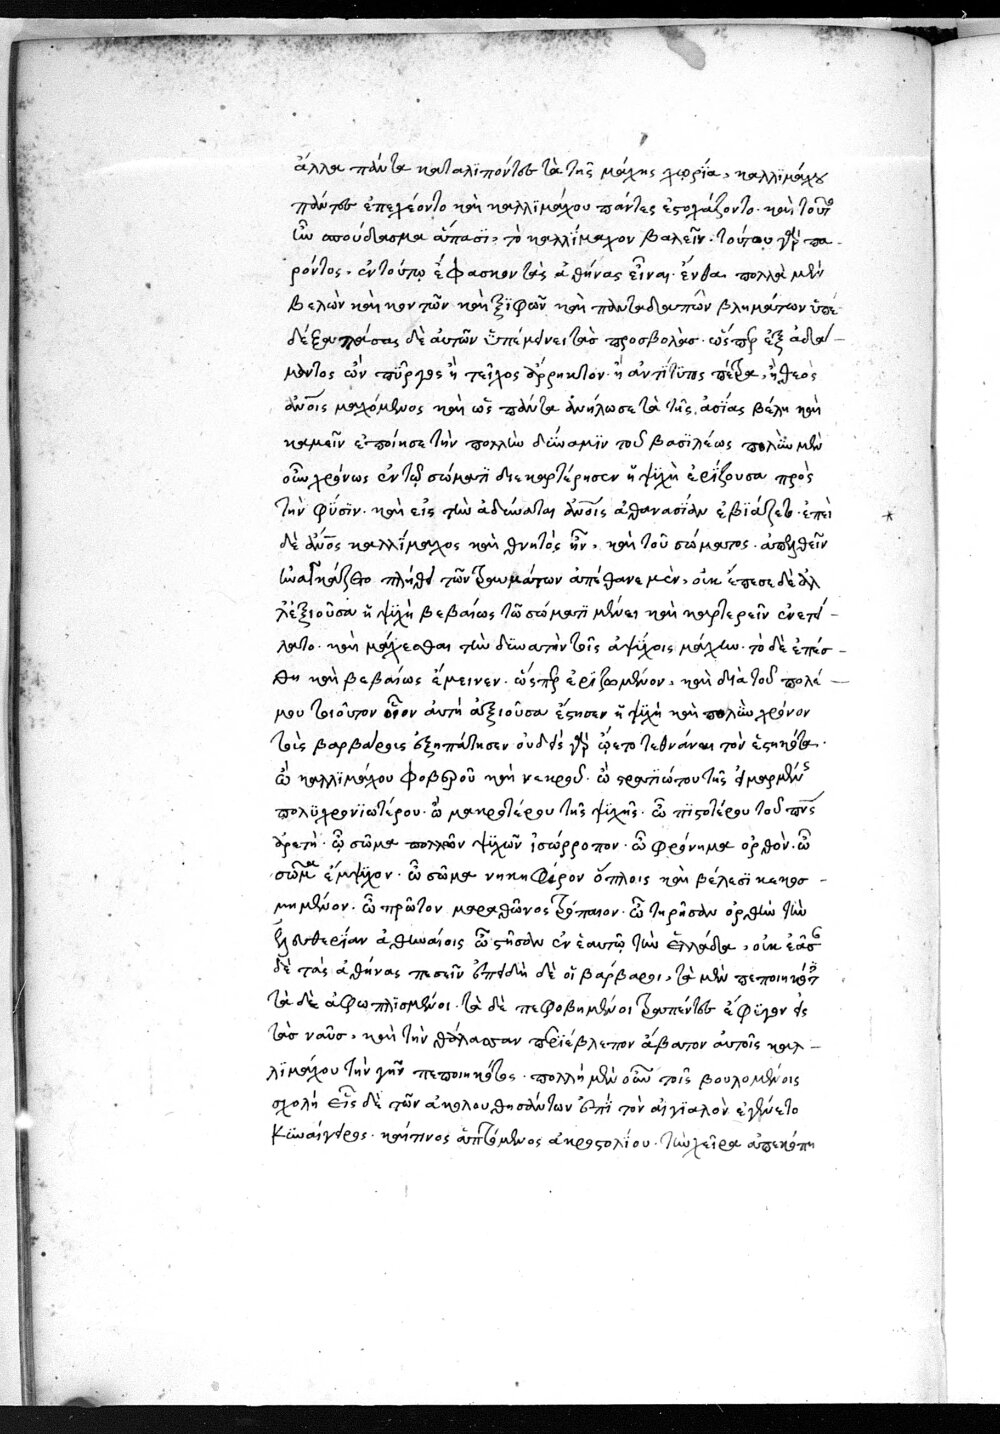 ἄλλα πάντα καταλιπόντες τὰ τῆς μάχης χωρία, καλλιμάχου
πάντες ἐπεχέοντο καὶ καλλιμάχου πάντες ἐστοχάζοντο· καὶ τοῦτο
ἦν σπούδασμα ἅπασι, τὸ καλλίμαχον βαλεῖν· τούτου γὰρ πα-
ρόντος, ἐν τούτῳ ἔφασκον τὰς ἀθήνας εἶναι· ἔνθα πολλὰ μὲν
βελῶν καὶ κοντῶν καὶ ξιφῶν καὶ παντοδαπῶν βλημάτων ὑπε
δέξατο πάσας δὲ αὐτῶν ὑπέμεινε τὰς προσβολὰς· ὥσπερ ἐξ ἀδά-
μαντος ὢν πύργος ἢ τεῖχος ἄρρηκτον· ἢ ἀντίτυπος πέτρα, ἢ θεὸς
ἀνθρώποις μαχόμενος καὶ ὡς πάντα ἀνήλωσε τὰ τῆς ἀσίας βέλη καὶ
καμεῖν ἐποίησε τὴν πολλὴν δύναμιν τοῦ βασιλέως πολὺν μὲν
οὖν χρόνως ἐν τῷ σώματι διεκαρτέρησεν ἡ ψυχὴ ἐρίζουσα πρὸς
τὴν φύσιν· καὶ εἰς τὴν ἀδύνατον ἀνθρώποις ἀθανασίαν ἐβιάζετο· ἐπεὶ
δὲ ἄνθρωπος καλλίμαχος καὶ θνητὸς ἦν, καὶ τοῦ σώματος· ἀπελθεῖν
ἠναγκάζετο πλήθει τῶν τραυμάτων ἀπέθανε μὲν, οὐκ ἔπεσε δὲ ἀλ
λ' ἐξιοῦσα ἡ ψυχὴ βεβαίως τῷ σώματι μένειν καὶ καρτερεῖν ἐνετεί-
λατο· καὶ μάχεσθαι τὴν δυνατὴν τοῖς ἀψύχοις μάχην· τὸ δὲ ἐπέσ-
θη καὶ βεβαίως ἔμεινεν· ὥσπερ ἐριζωμένον, καὶ διὰ τοῦ πολέ-
μου τοιοῦτον οἷον αὐτὴ ἀξιοῦσα ἔστησεν ἡ ψυχὴ καὶ πολὺν χρόνον
τοὺς βαρβάροις ἐξηπάτησεν οὐδεὶς γὰρ ᾤετο τεθνάναι τὸν ἑστηκότα·
ὢ καλλιμάχου φοβεροῦ καὶ νεκροῦ· ὢ στρατιώτου τῆς εἱμαρμένης
πολυχρονιωτέρου· ὢ μακροτέρου τῆς ψυχῆς· ὢ πιστοτέρου τοῦ πνεύματος
ἀρετὴ· ὢ σῶμα πολλῶν ψυχῶν ἰσόρροπον· ὢ φρόνημα ὀρθὸν· ὢ
σῶμα ἔμψυχον· ὢ σῶμα νικηφόρον ὅπλοις καὶ βέλεσι κεκοσ-
μημένον· ὢ πρῶτον μαραθῶνος τρόπαιον· ὢ τηρῆσαν ὀρθὴν τὴν
ἐλευθερίαν ἀθηναίοις ὢ στῆσαν ἐν ἑαυτῷ τὴν ἑλλάδα, οὐκ ἐᾶσαν
δὲ τὰς ἀθήνας πεσεῖν ἐπειδὴ δὲ οἱ βάρβαροι, τὰ μὲν πεποιηκότες
τὰ δὲ ἀφωπλισμένοι· τὰ δὲ πεφοβημένοι τραπέντες ἔφευγον εἰς
τὰς ναῦς, καὶ τὴν θάλασσαν περιέβλεπον ἄβατον αὐτοῖς καλ-
λιμάχου τὴν γῆν πεποιηκότος· πολλὴ μὲν οὖν τοῖς βουλομένοις
σχολὴ εἷς δὲ τῶν ἀκολουθησάντων ἐπὶ τὸν αἰγιαλὸν ἐγένετο
Κυναίγειρος· καί τινος ἁπτόμενος ἀκροστολίου· τὴν χεῖρα ἀπεκόπη